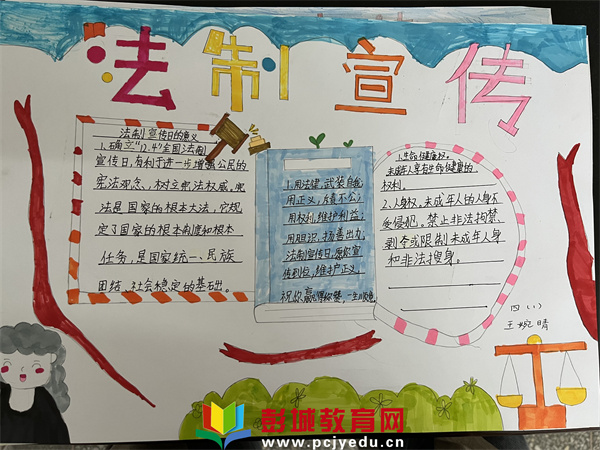 法制宣传
法制宣传日的意义
1.确立“12.4”全国法制
宣传日,有利于进一步增强公民的
宪法观念、树立宪法权威,宪
法是国家的根本大法,它规
定了国家的根本制度和根本
任务,是国家统一、民族
团结、社会稳定的基础。
1.用法律,武装自我;
用正义,斥责不公;
用权利,维护利益;
用胆识,扬善出力,
法制宣传日,愿你宣
传到位,维护正义,
祝你赢得称赞,一生顺色
1.生命健康权。
未成年人享有生命健康的
权利。
2.人身权,未成年人的人身不
受侵犯,禁止非法拘禁、
剥夺或限制未成年人身
和非法搜身。
四(1)
王婉晴
彭城教育网
www.pcjyedu.cn